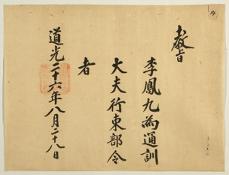 敎旨
李鳳九爲通訓
大夫行東部令
者
道光二十六年八月二十八日